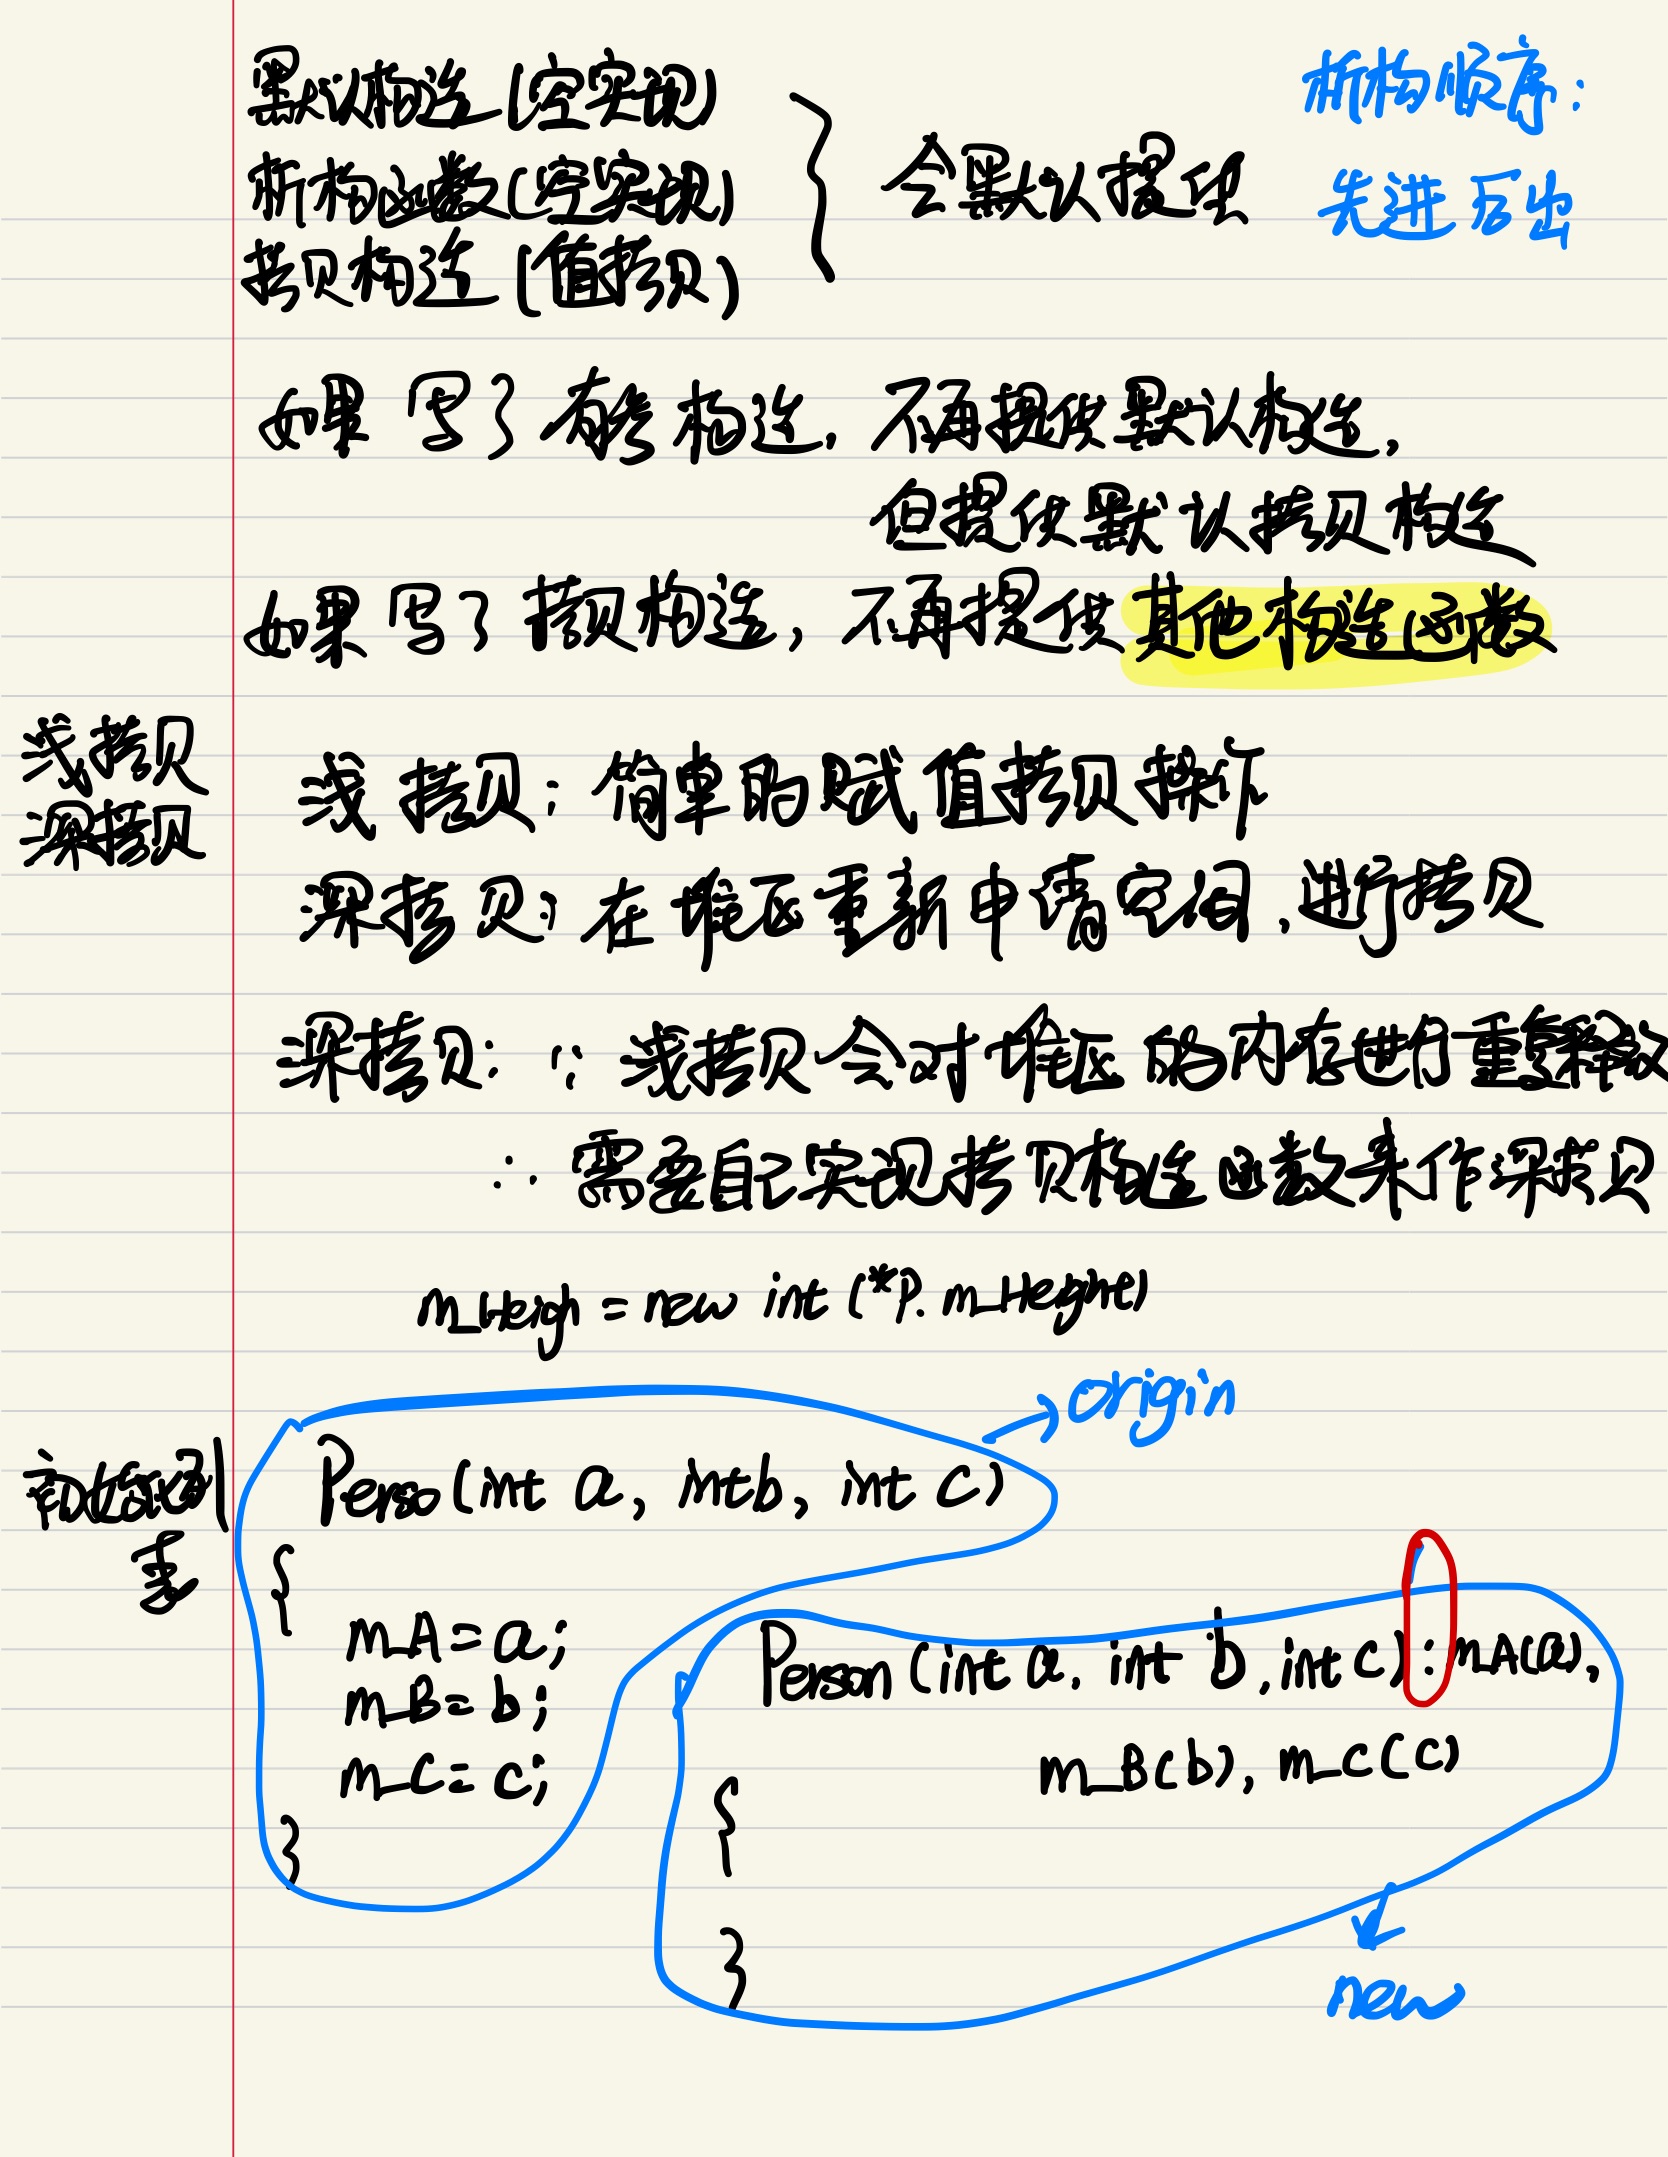 默认构造(空实现)
析构函数(空实现)
拷贝构造(值拷贝)
会默认提供
析构顺序:
先进后出
如果写了有参构造,不再提供默认构造,
但提供默认拷贝构造
如果写了拷贝构造,不再提供其他构造函数
浅拷贝
深拷贝
浅拷贝:简单的赋值拷贝操作
深拷贝:在堆区重新申请空间,进行拷贝
深拷贝:∵浅拷贝会对堆区的内存进行重复释放
∴需要自己实现拷贝构造函数来作深拷贝
m_Heigh = new int (*P. m_Heght)
→ origin
初始化列
表
Perso(int a, int b, int c)
{
m_A = a;
m_B = b;
m_C = c;
}
Person(int a, int b, int c): m_A(a),
m_B(b), m_C(c)
{
}
new